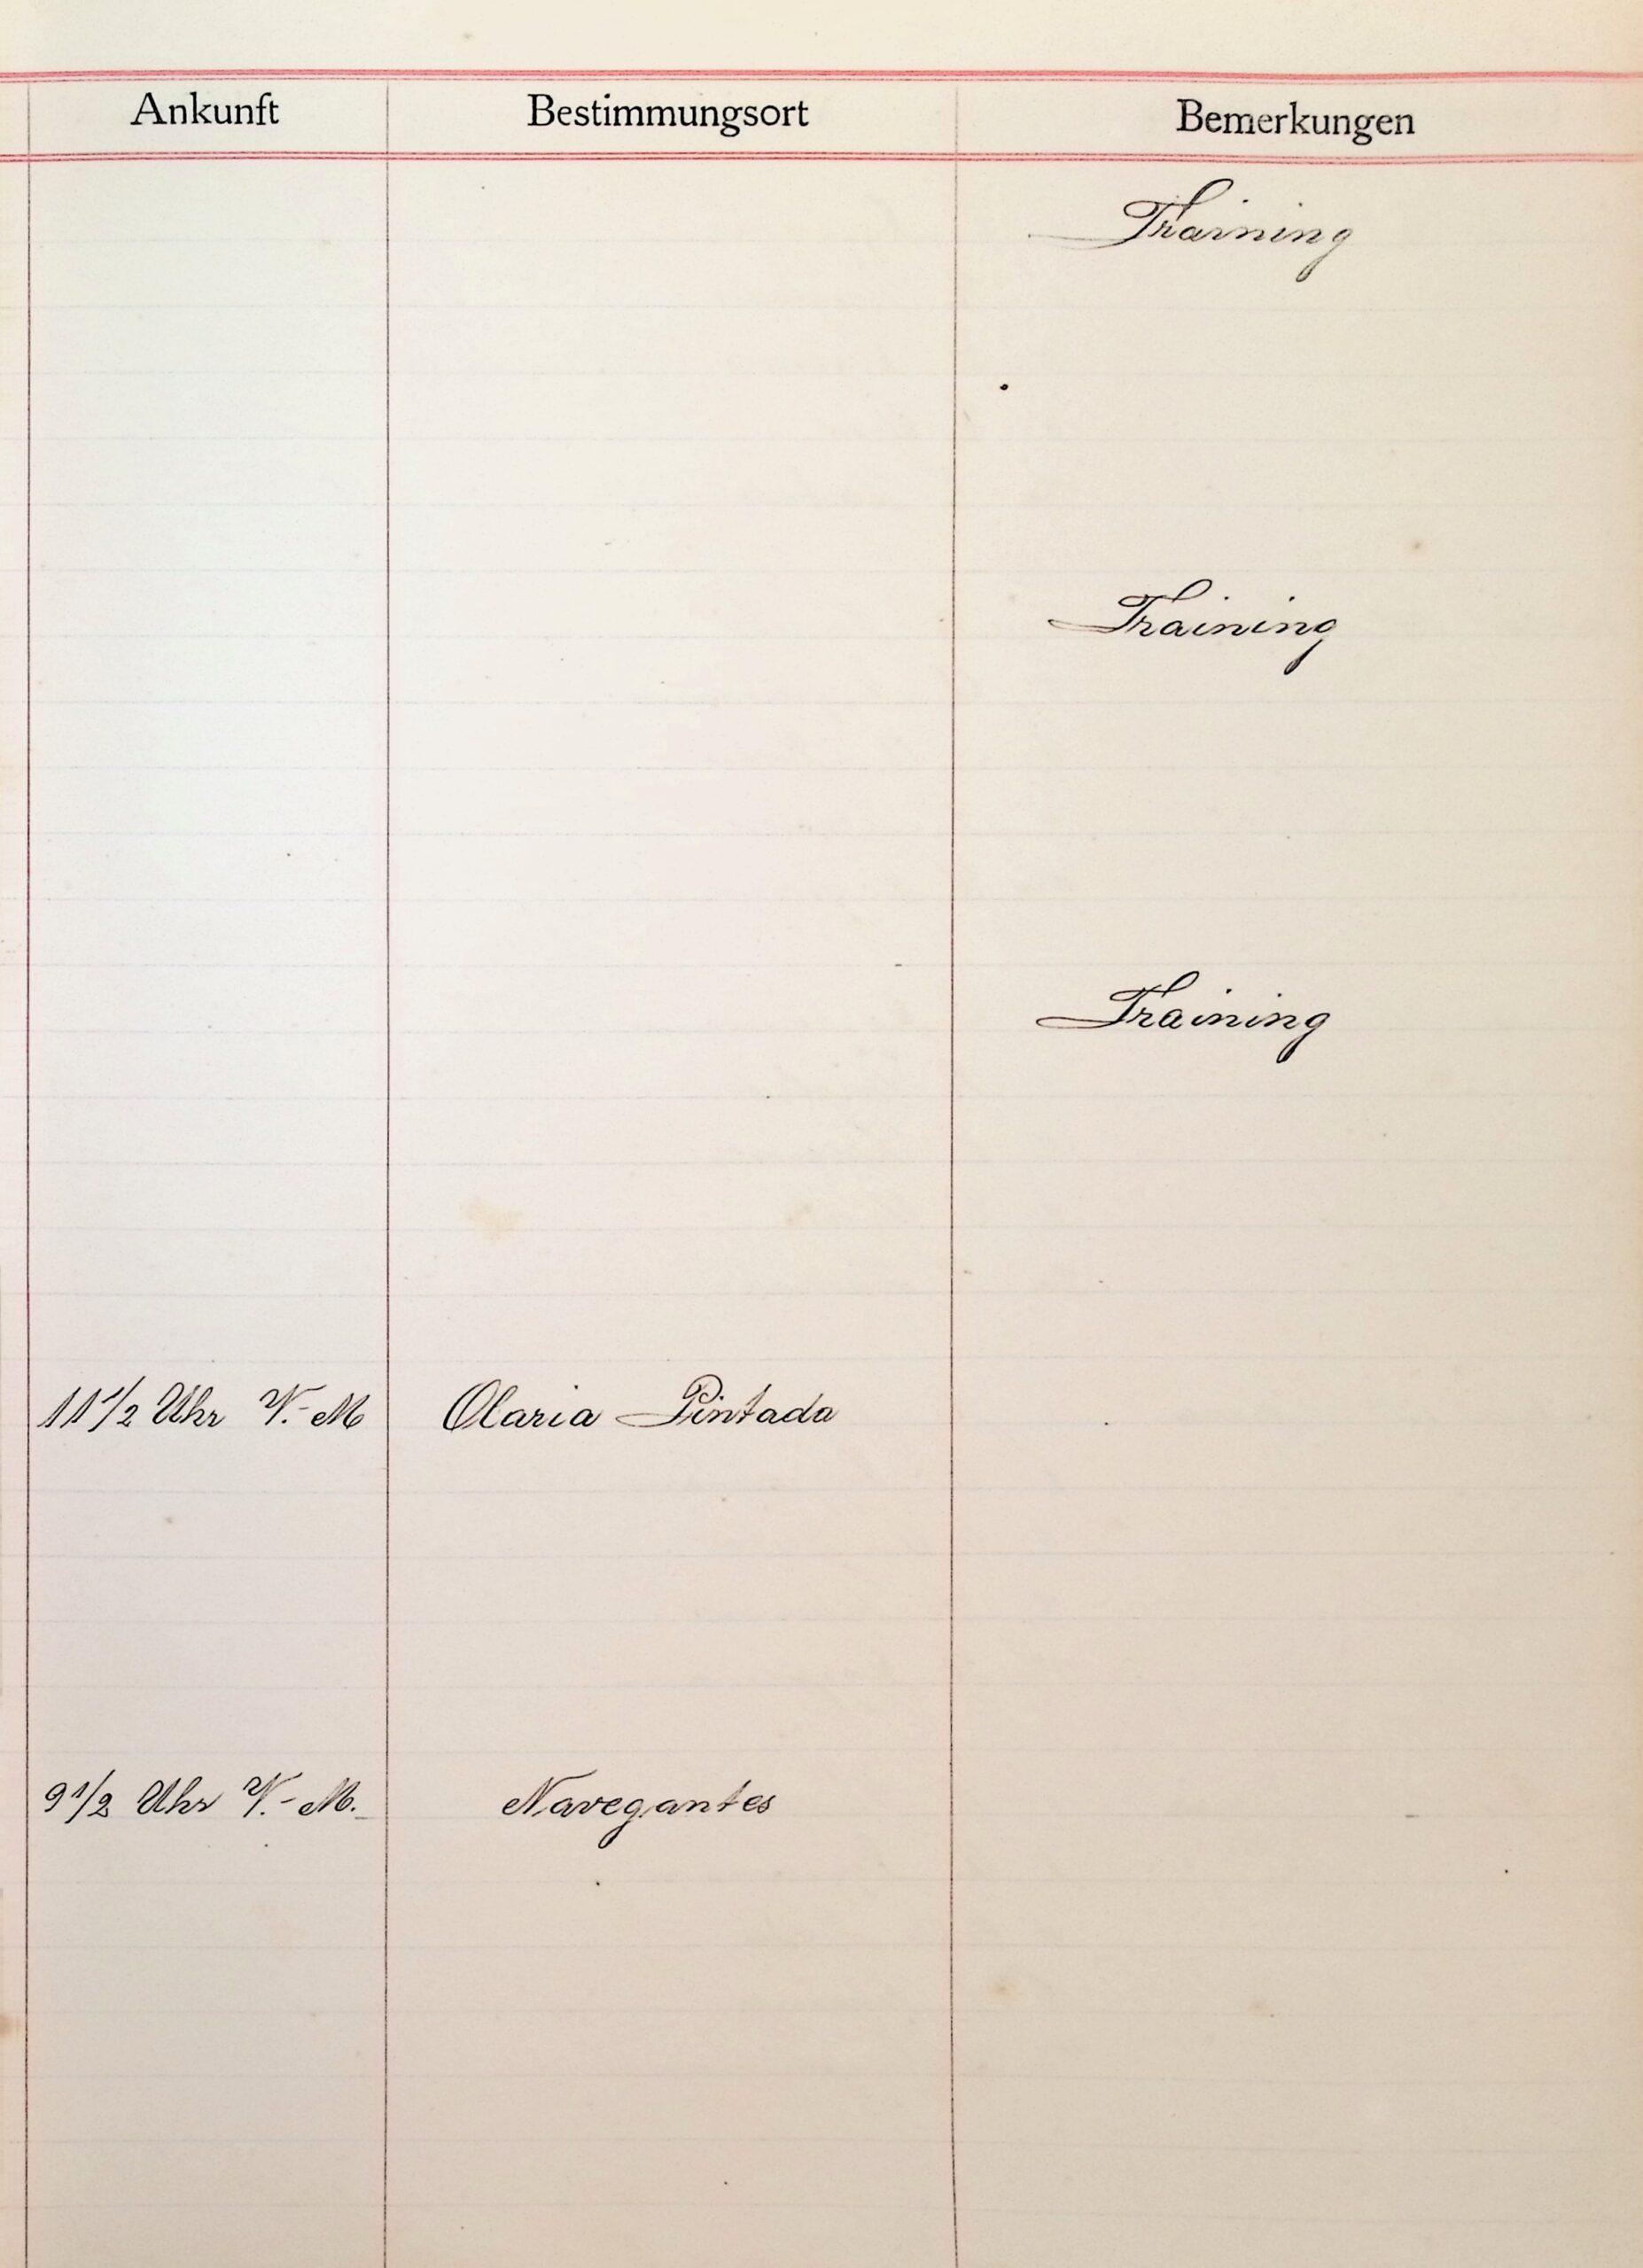 Ankunft Bestimmungsort Bemerkungen
Training
Training
Training
11 1/2 Uhr V.-M Olaria Pintada
9 1/2 Uhr V.-M. Navegantes